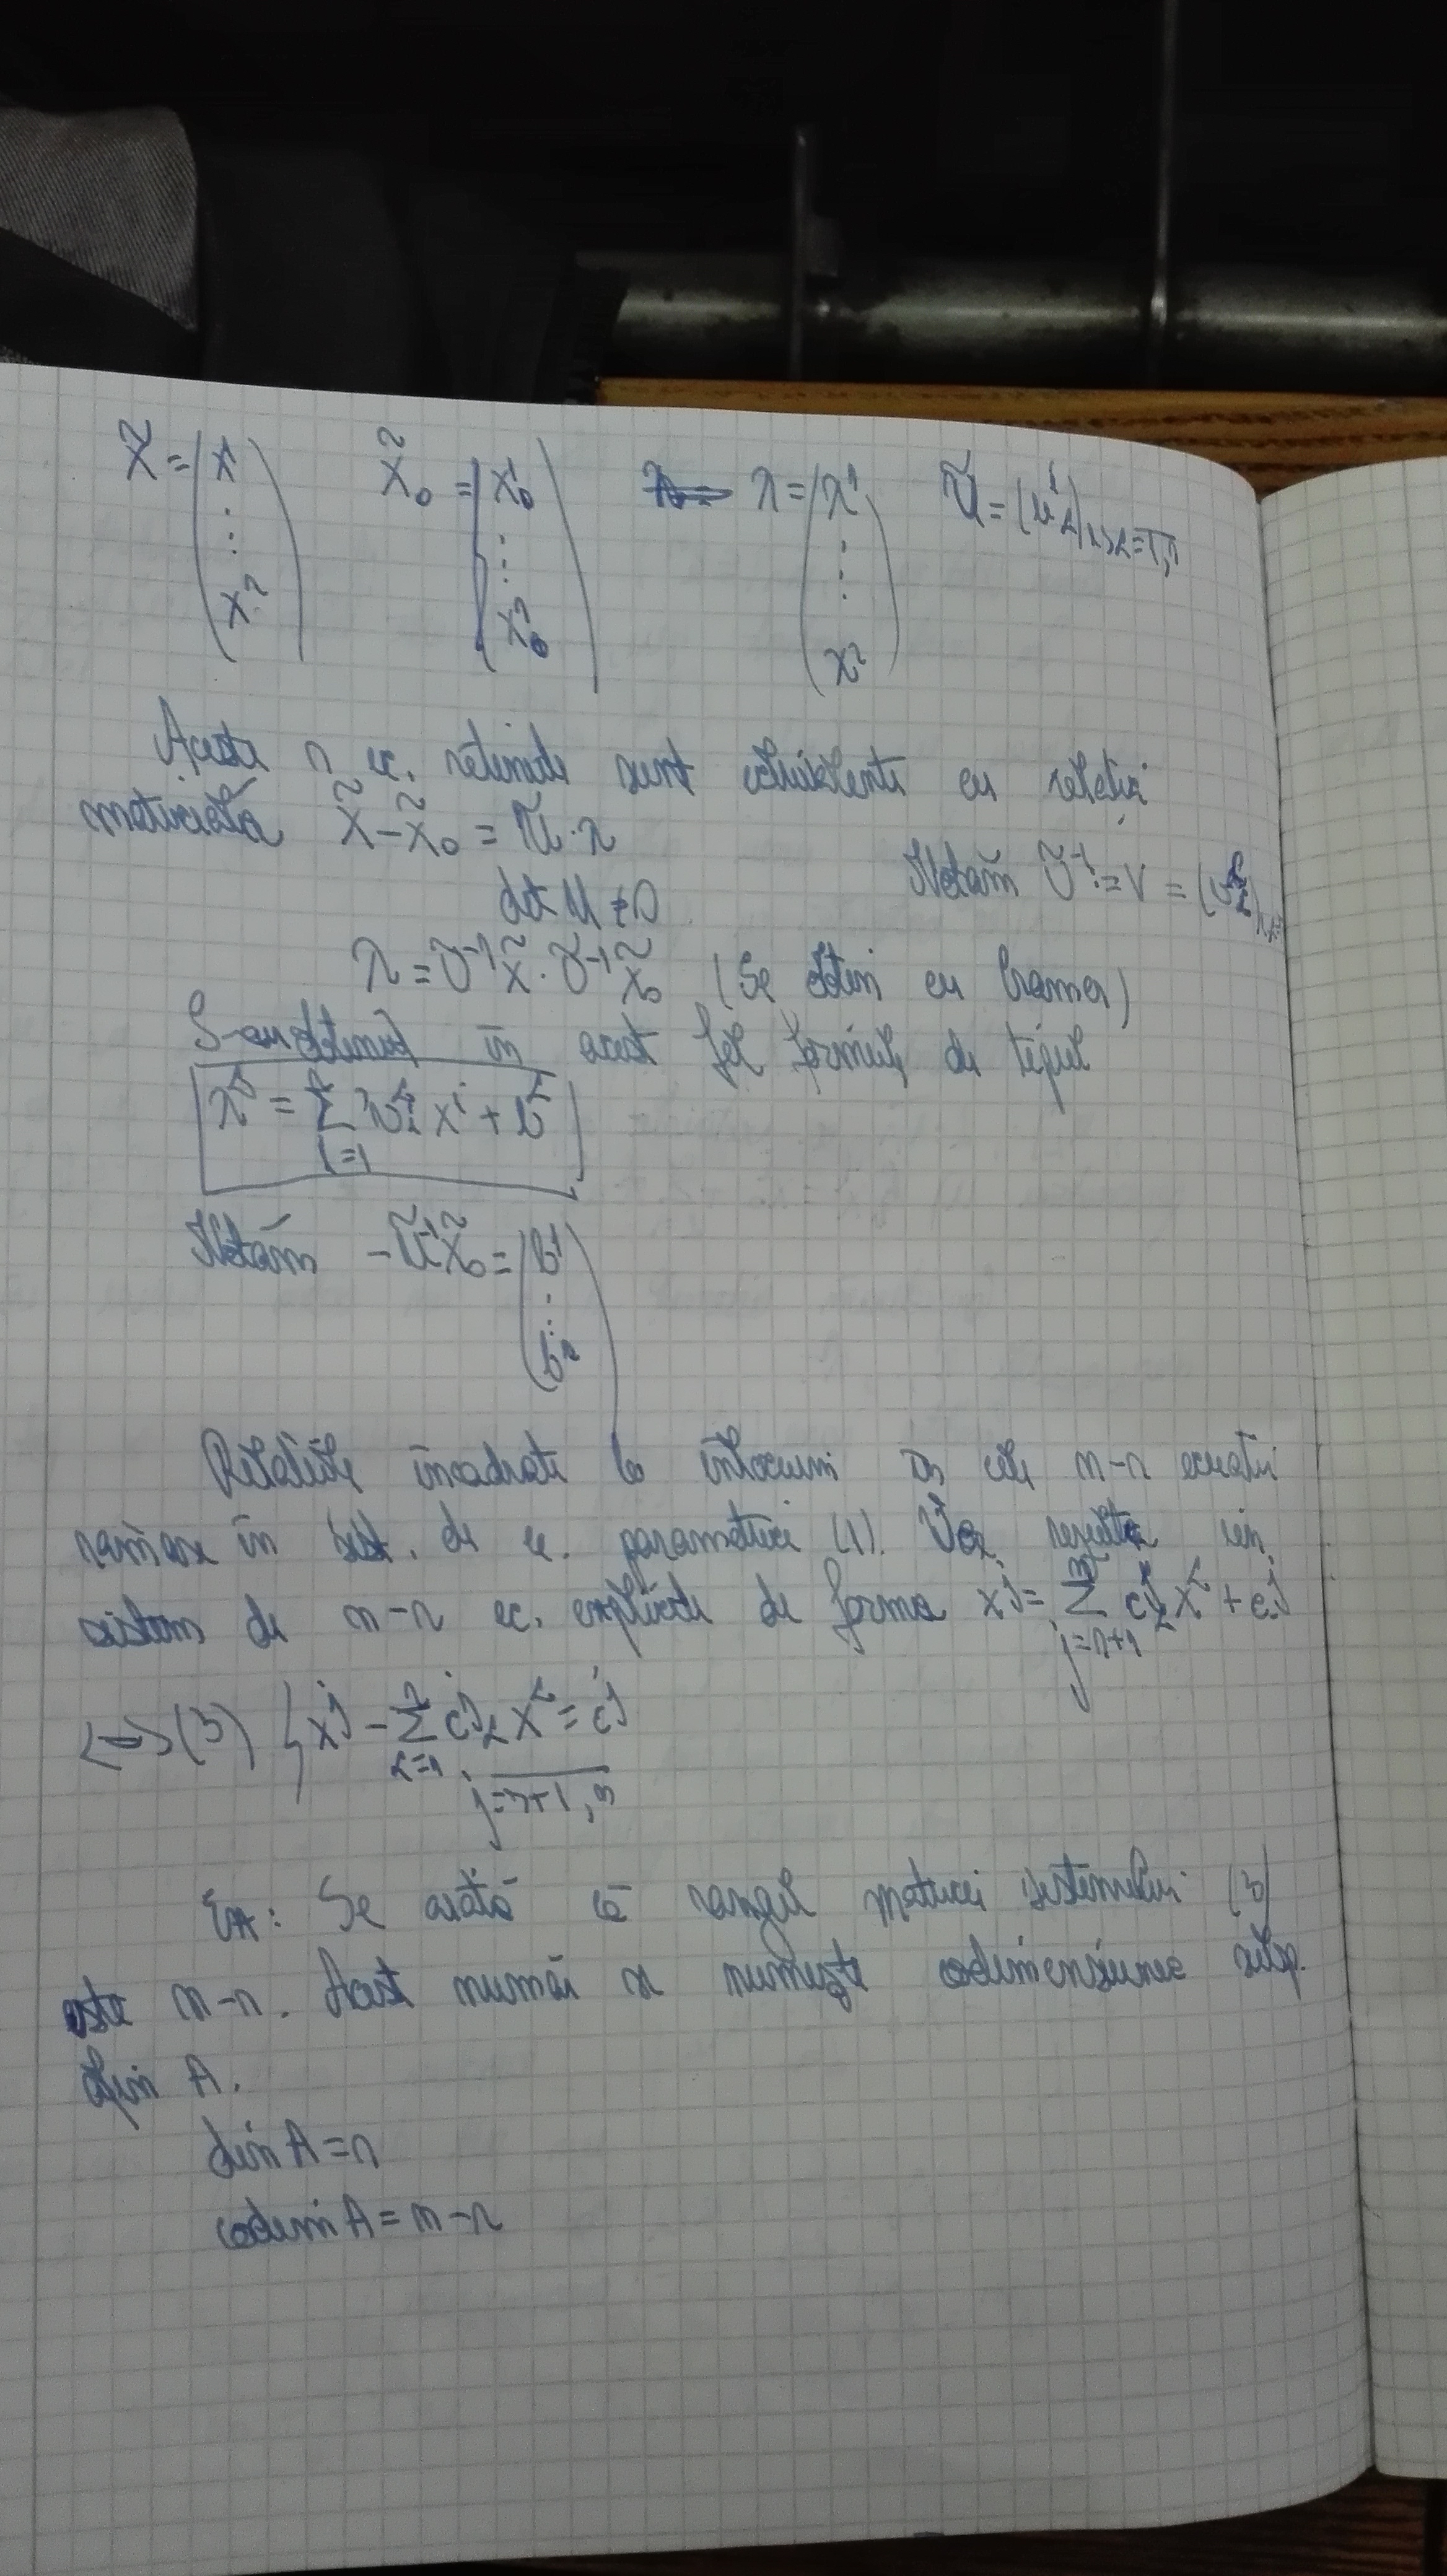 X̃ = (x¹ ⋮ xⁿ) X̃₀ = (x₀¹ ⋮ x₀ⁿ) λ = (λ¹ ⋮ λⁿ) Ũ = (u
Aceste n ec. retinute sunt echivalente cu relatia
matriceală X̃ - X̃₀ = Ũ · λ
det U ≠ 0
Notăm Ũ⁻¹ = V =
λ = Ũ⁻¹ X̃ · Ũ⁻¹ X̃₀ (Se obtin cu Cramer)
S-au obtinut în acest fel formule de tipul
Notăm -Ũ⁻¹X̃₀ = (b¹ ⋮ bⁿ)
Relatiile incadrate le inlocuim in cele m-n ecuatii
ramase în sist. de ec. parametrice (1). Voz rezulta un
sistem de m-n ec. explicite de forma xʲ =
<=> (3) { xʲ - Σ cʲ_α x^α = cʲ
j = n+1, m
Se arată că rangul matricei sistemului (3)
este m-n. Acest număr se numeşte codimensiunea subsp.
lin A.
dim A = n
codim A = m-n